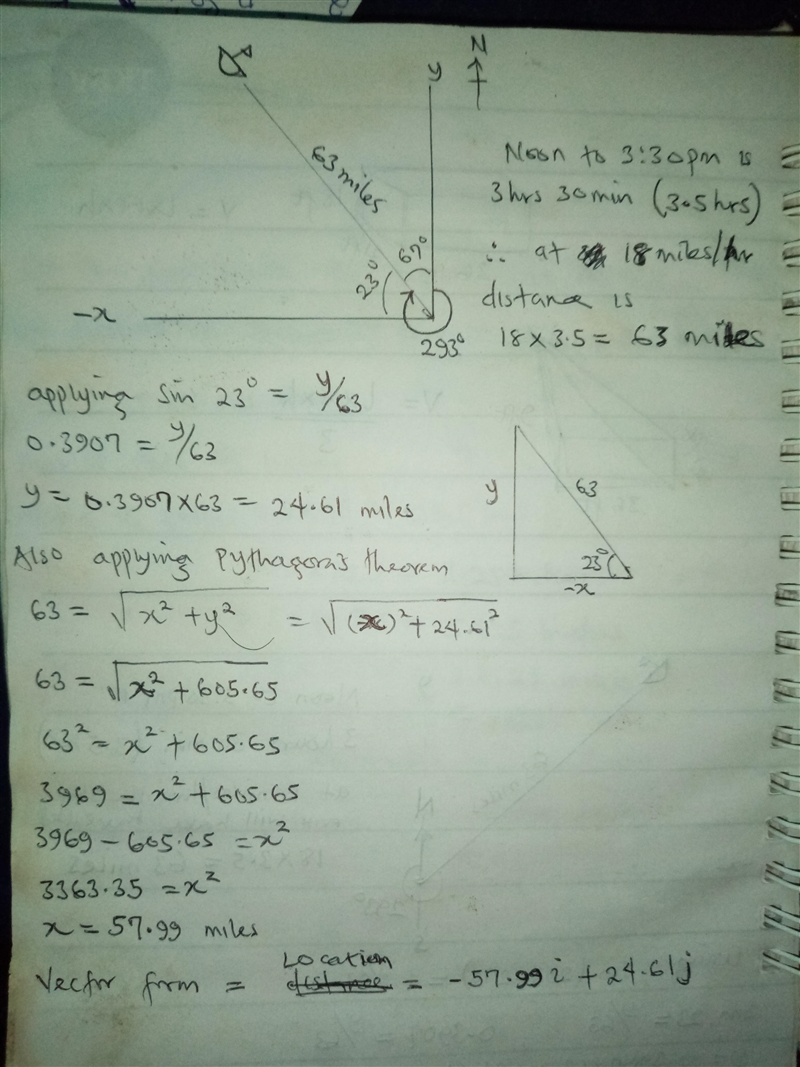 N
y
Noon to 3:30pm is
63 miles
3hrs 30min (3.5hrs)
67°
∴ at 18 miles/hr
23°
distance is
-x
293°
18 × 3.5 = 63 miles
applying Sin 23° = y/63
0.3907 = y/63
y = 0.3907×63 = 24.61 miles
y
63
23°
-x
Also applying Pythagoras theorem
63 = √x² + y² = √(-x)² + 24.61²
63 = √x² + 605.65
63² = x² + 605.65
3969 = x² + 605.65
3969 - 605.65 = x²
3363.35 = x²
x = 57.99 miles
Location
Vector form = distance = -57.99i + 24.61j